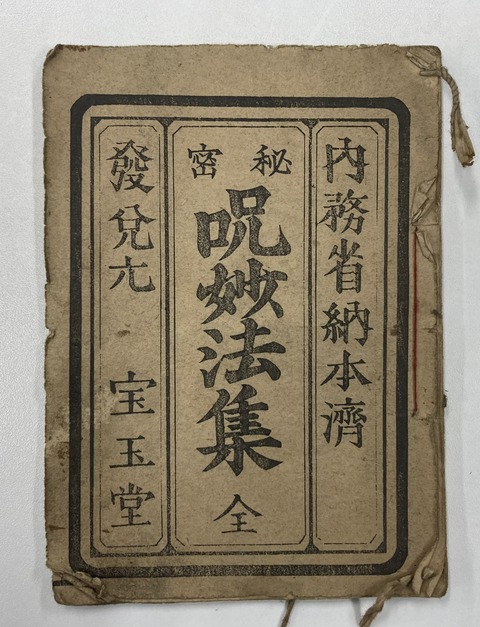 内務省納本濟
秘密
呪妙法集 全
發兌元 宝玉堂